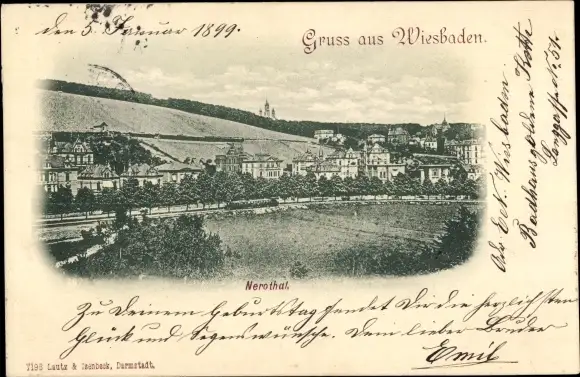 den 5. Januar 1899.
Gruss aus Wiesbaden.
Nerothal.
Zu Deinem Geburtstag sendet Dir die herzlichsten
Glück und Segenswünsche. Dein lieber Bruder
Emil
7198 Lautz & Isenbeck, Darmstadt.
Wiesbaden
Badhaus goldene Kette
Langgasse No. 51.